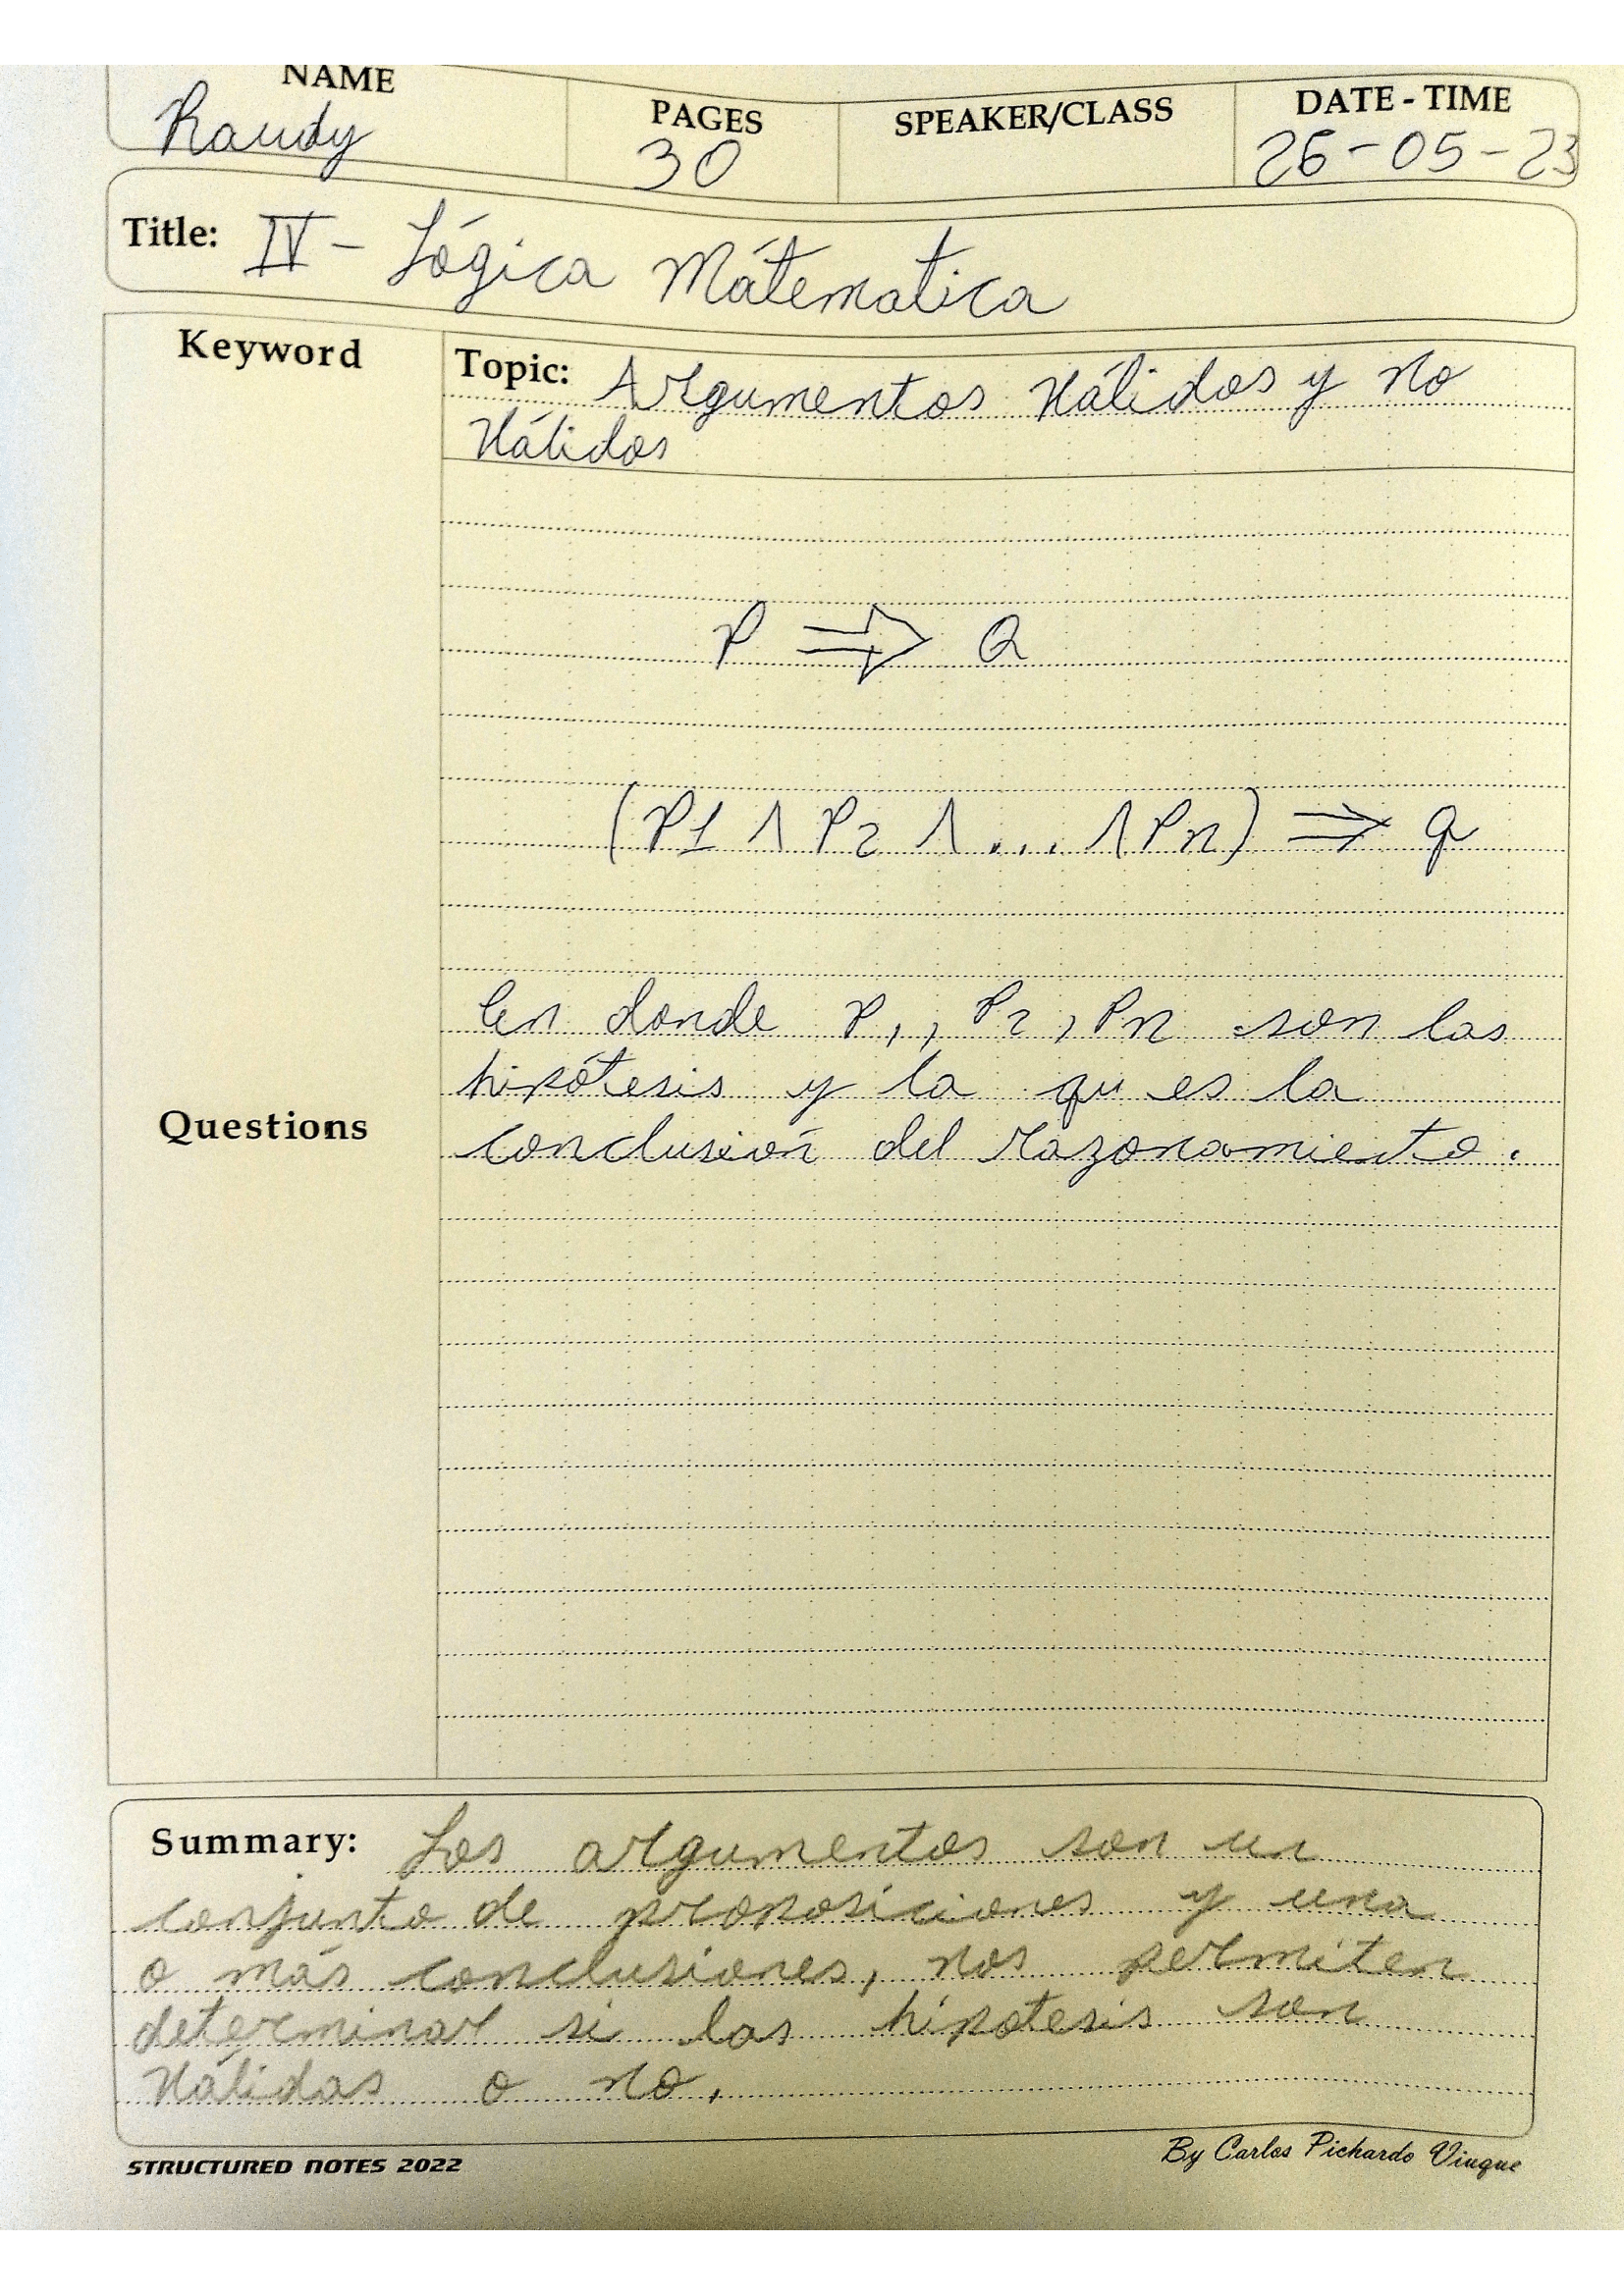 NAME PAGES SPEAKER/CLASS DATE - TIME
Randy 30 26-05-23
Title: IV - Lógica Mátematica
Keyword
Topic: Argumentos Válidos y no
Válidos
P ⇒ Q
(P1 ∧ P2 ∧ ... ∧ Pn) ⇒ q
En donde P1, P2, Pn son las
hipótesis y la qu es la
Questions
conclusión del razonamiento.
Summary: Los argumentos son un
conjunto de proposiciones y una
o más conclusiones, nos permiten
determinar si las hipotesis son
Válidas o no.
STRUCTURED NOTES 2022 By Carlos Pichardo Viuque